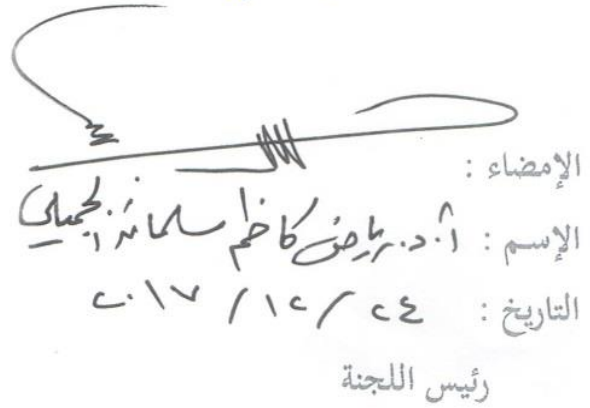 الإمضاء :
الإسم : أ.د. رياض كاظم سلمان الجميلي
التاريخ : ٢٤ / ١٢ / ٢٠١٧
رئيس اللجنة